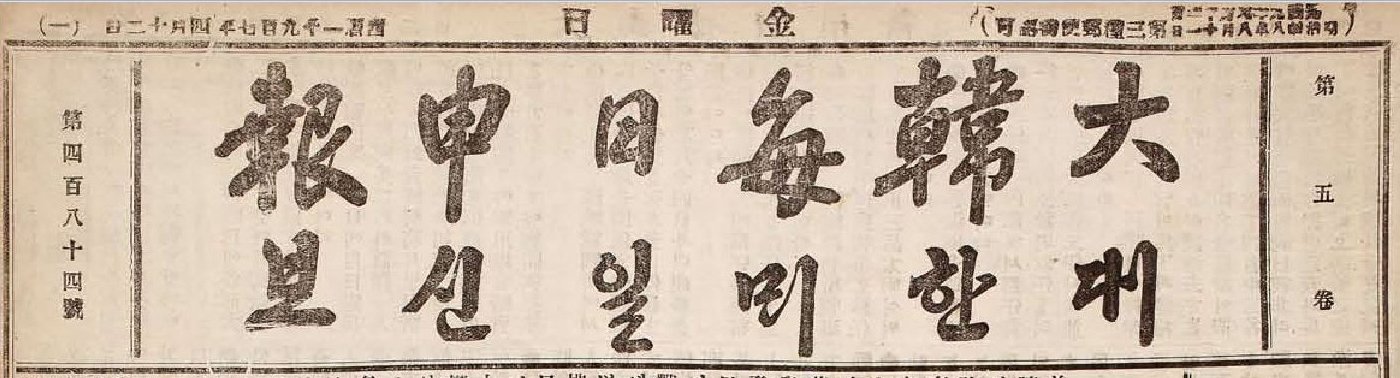 第三種郵便物認可
金曜日
西曆一千九百七年四月十二日 (一)
第五卷
大韓每日申報
대한ᄆᆡ일신보
第四百八十四號